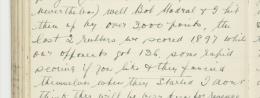 well but Gabral & I hit
them up by over 3000 points, the
last 2 rubbers, we scored 1897 while
our opponents got 136, some rapid
scoring if you like & they fancied
themselves when they started I don't
think they will be